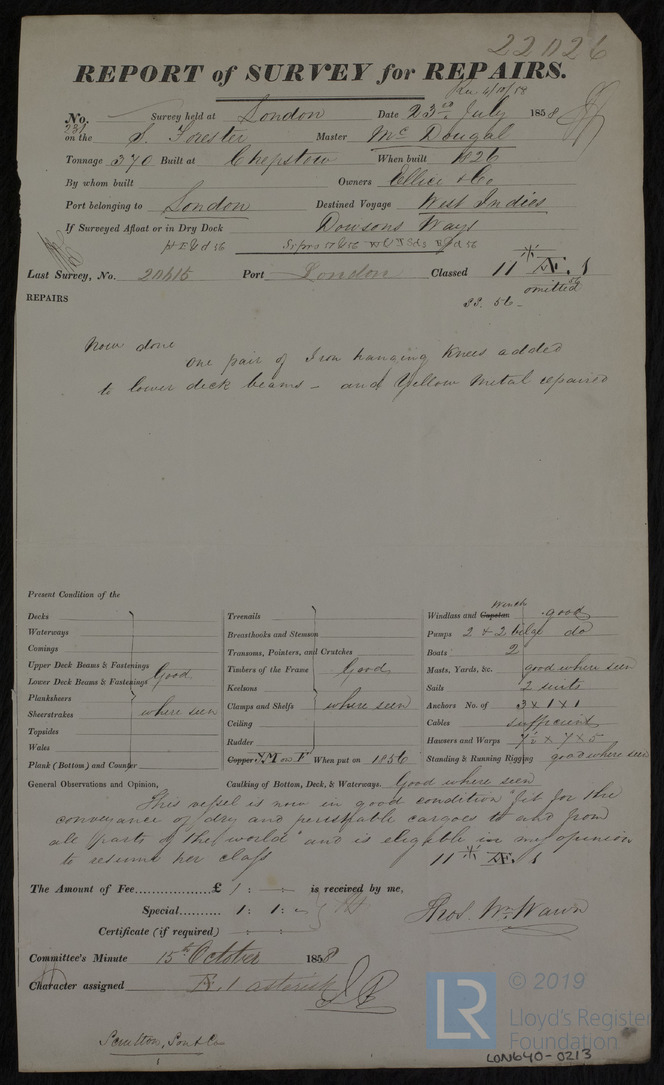 22026
REPORT of SURVEY for REPAIRS.
No. Survey held at London Date 23rd July 1858
on the S. Forester Master Mc Dougal
Tonnage 370 Built at Chepstow When built 1826
By whom built Owners Ellice & Co
Port belonging to London Destined Voyage West Indies
If Surveyed Afloat or in Dry Dock Dowsons Ways
Last Survey, No. 20415 Port London Classed 11 * Æ. 1
omitted
33. 56
REPAIRS
Now done
One pair of Iron hanging Knees added
to lower deck beams - and Yellow Metal repaired
Present Condition of the
Decks
Waterways
Comings
Upper Deck Beams & Fastenings
Lower Deck Beams & Fastenings Good
Planksheers
Sheerstrakes where seen
Topsides
Wales
Plank (Bottom) and Counter
Treenails
Breasthooks and Stemson
Transoms, Pointers, and Crutches
Timbers of the Frame Good
Keelsons
Clamps and Shelfs where seen
Ceiling
Rudder
Copper YM or F When put on 1856
Windlass and Capstan Winch good
Pumps 2 & 2 bilge do
Boats 2
Masts, Yards, &c. good where seen
Sails 2 suits
Anchors No. of 3 x 1 x 1
Cables sufficient
Hawsers and Warps 7½ x 7 x 5
Standing & Running Rigging good where seen
General Observations and Opinion, Caulking of Bottom, Deck, & Waterways. Good where seen
This vessel is now in good condition "fit for the
conveyance of dry and perishable cargoes to and from
all parts of the world" and is eligible in my opinion
to resume her class 11 * Æ. 1
The Amount of Fee................£ 1 : is received by me,
Special.......... 1 : 1 : -
Certificate (if required)
Thos. Wm. Wawn
Committee's Minute 15th October 1858
Character assigned Æ. 1 asterisk
Scrutton, Son & Co
LR
© 2019
Lloyd's Register
Foundation
LON640-0213